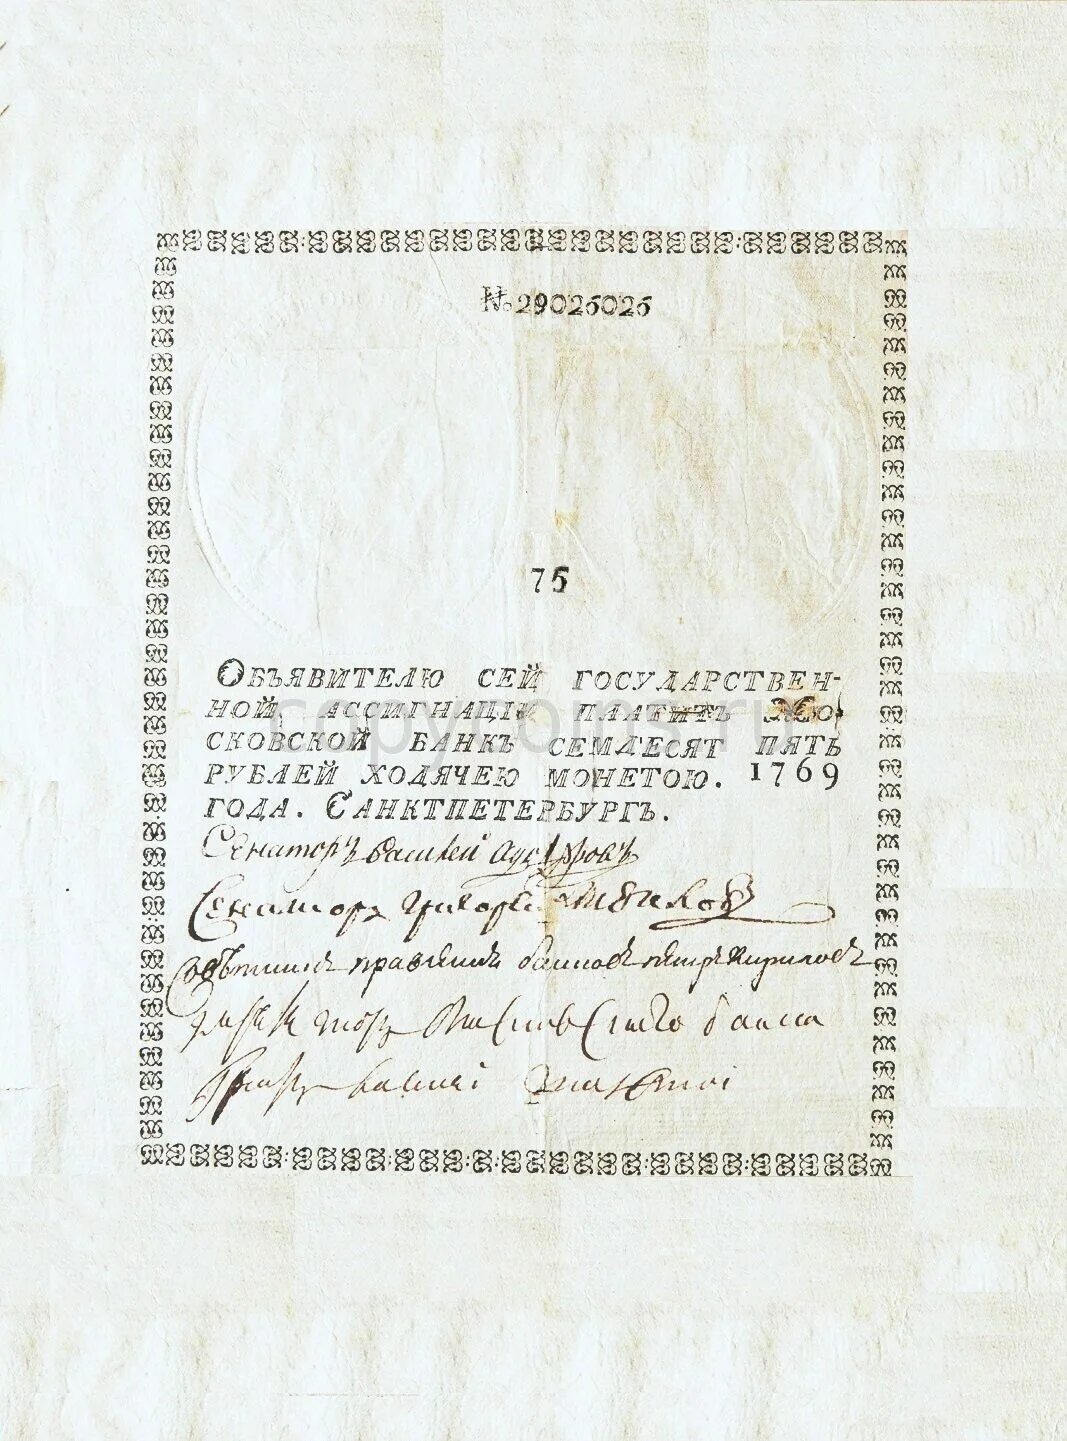 № 29025025
75
Объявителю сей государствен-
ной ассигнацiи платитъ Мо-
сковской банкъ семдесят пять
рублей ходячею монетою. 1769
года. Санктпетербургъ.
Сенаторъ
Сенаторъ григорей
Советникъ правления банковъ петръ Кириловъ
Директоръ банка